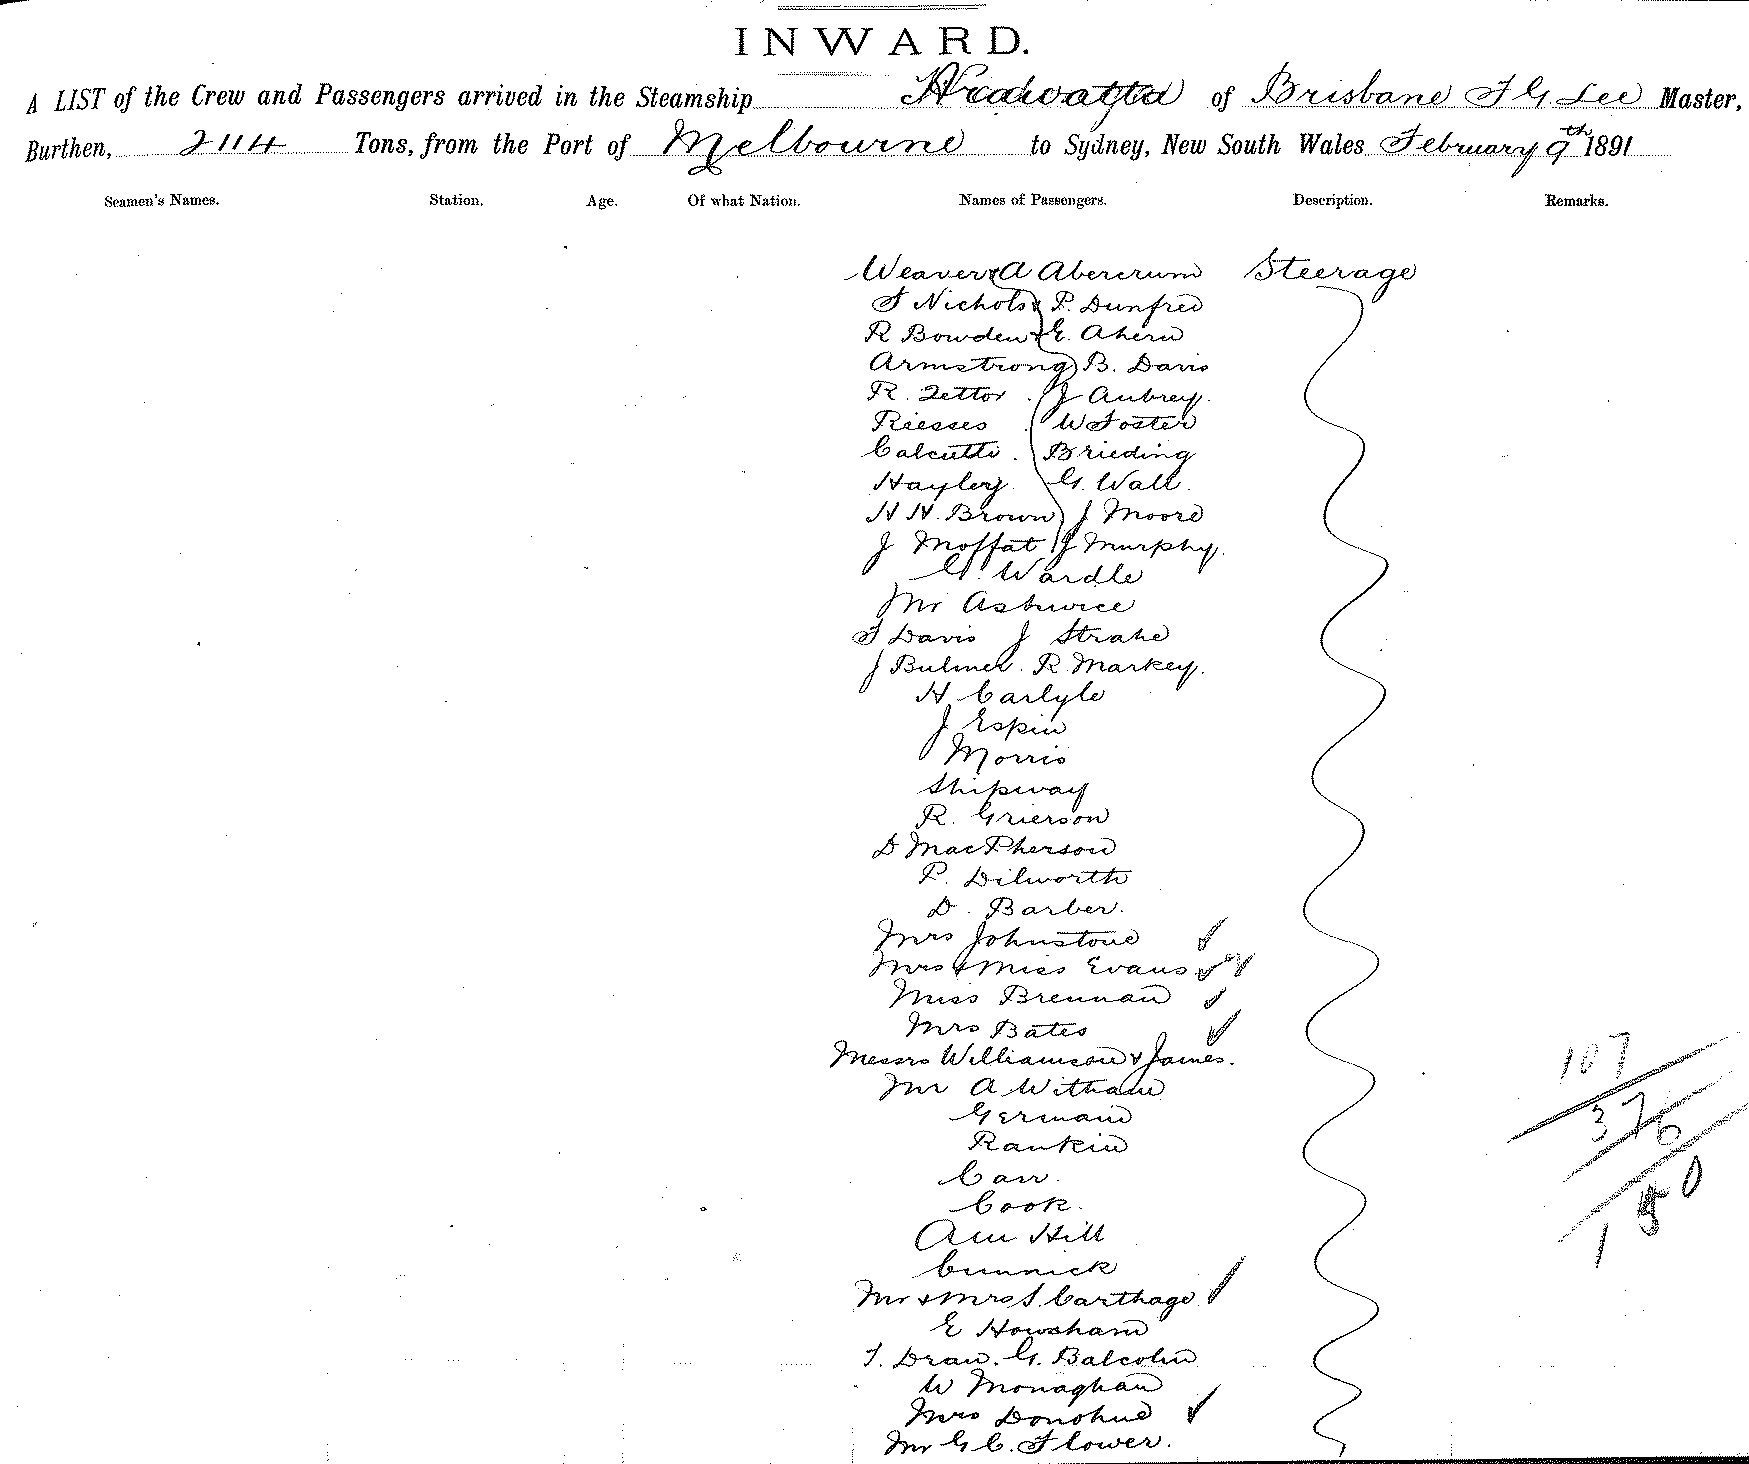 INWARD.
A LIST of the Crew and Passengers arrived in the Steamship of Brisbane J G Lee Master,
Burthen, 2114 Tons, from the Port of Melbourne to Sydney, New South Wales February 9th 1891
Seamen's Names. Station. Age. Of what Nation. Names of Passengers. Description. Remarks.
Weaver & A Abercrum Steerage
J Nichols & P. Dunfree
R Bowden & E. Ahern
Armstrong B. Davis
R. Zettor J Aubrey.
Riesses W Foster
Calcutti. Brieding
Hayley G. Wall.
H H. Brown J Moore
J Moffat J Murphy.
G. Wardle
Mr
J Davis J Strahe
J Bulmer. R. Markey.
H. Carlyle
J Espin
Morris
Shipway
R. Grierson
D MacPherson
P. Dilworth
D. Barber.
Mrs Johnstone
Mrs & Miss Evans
Miss Brennan
Mrs Bates
Messrs Williamson & James.
Mr A Witham
Germain
Rankin
Carr.
Cook.
Hill
Cunnick
Mr & Mrs S. Carthage
E Howsham
T. Dran. G. Balcolm
W Monaghan
Mrs Donohue
Mr G C. Flower.
107
376